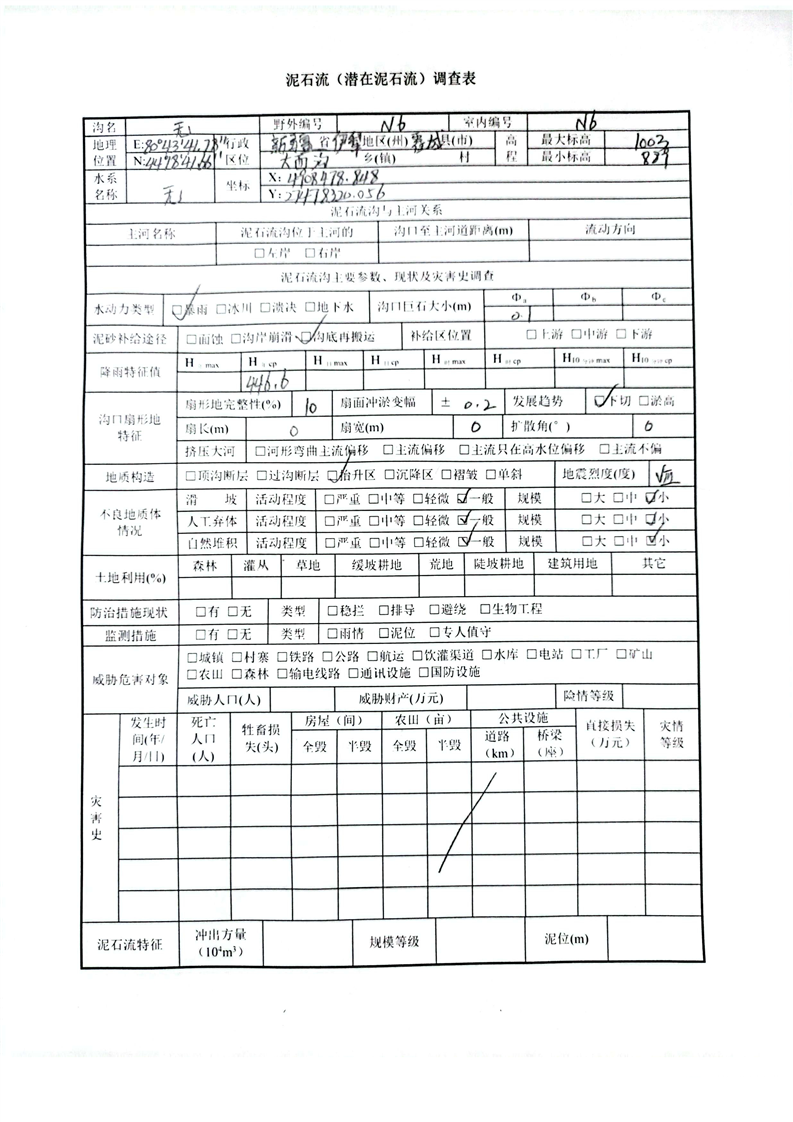 泥石流（潜在泥石流）调查表
沟名 无 野外编号 N6 室内编号 N6
地理 E:80°43′41.78″ 行政 新疆省伊犁地区(州)霍城县(市) 高 最大标高 1003
位置 N:44°18′41.66″ 区位 大西沟 乡(镇) 村 程 最小标高 889
水系 坐标 X: 4908478.848
名称 无 Y:
泥石流沟与主河关系
主河名称 泥石流沟位于主河的 沟口至主河道距离(m) 流动方向
□左岸 □右岸
泥石流沟主要参数、现状及灾害史调查
水动力类型 ☑暴雨 □冰川 □溃决 □地下水 沟口巨石大小(m) Φa Φb Φc
0.1
泥砂补给途径 □面蚀 □沟岸崩滑 ☑沟底再搬运 补给区位置 □上游 □中游 □下游
降雨特征值 H max H cp H max H cp H max H cp H10 max H10 cp
446.6
沟口扇形地 扇形地完整性(%) 10 扇面冲淤变幅 ± 0.2 发展趋势 ☑下切 □淤高
特征 扇长(m) 0 扇宽(m) 0 扩散角(°) 0
挤压大河 □河形弯曲主流偏移 □主流偏移 □主流只在高水位偏移 □主流不偏
地质构造 □顶沟断层 □过沟断层 ☑抬升区 □沉降区 □褶皱 □单斜 地震烈度(度)
不良地质体 滑 坡 活动程度 □严重 □中等 □轻微 ☑一般 规模 □大 □中 ☑小
情况 人工弃体 活动程度 □严重 □中等 □轻微 ☑一般 规模 □大 □中 ☑小
自然堆积 活动程度 □严重 □中等 □轻微 ☑一般 规模 □大 □中 ☑小
土地利用(%) 森林 灌丛 草地 缓坡耕地 荒地 陡坡耕地 建筑用地 其它
防治措施现状 □有 □无 类型 □稳拦 □排导 □避绕 □生物工程
监测措施 □有 □无 类型 □雨情 □泥位 □专人值守
威胁危害对象 □城镇 □村寨 □铁路 □公路 □航运 □饮灌渠道 □水库 □电站 □工厂 □矿山
□农田 □森林 □输电线路 □通讯设施 □国防设施
威胁人口(人) 威胁财产(万元) 险情等级
灾害史 发生时间(年/月/日) 死亡人口(人) 牲畜损失(头) 房屋（间） 农田（亩） 公共设施 直接损失（万元） 灾情等级
全毁 半毁 全毁 半毁 道路（km） 桥梁（座）
泥石流特征 冲出方量（10⁴m³） 规模等级 泥位(m)